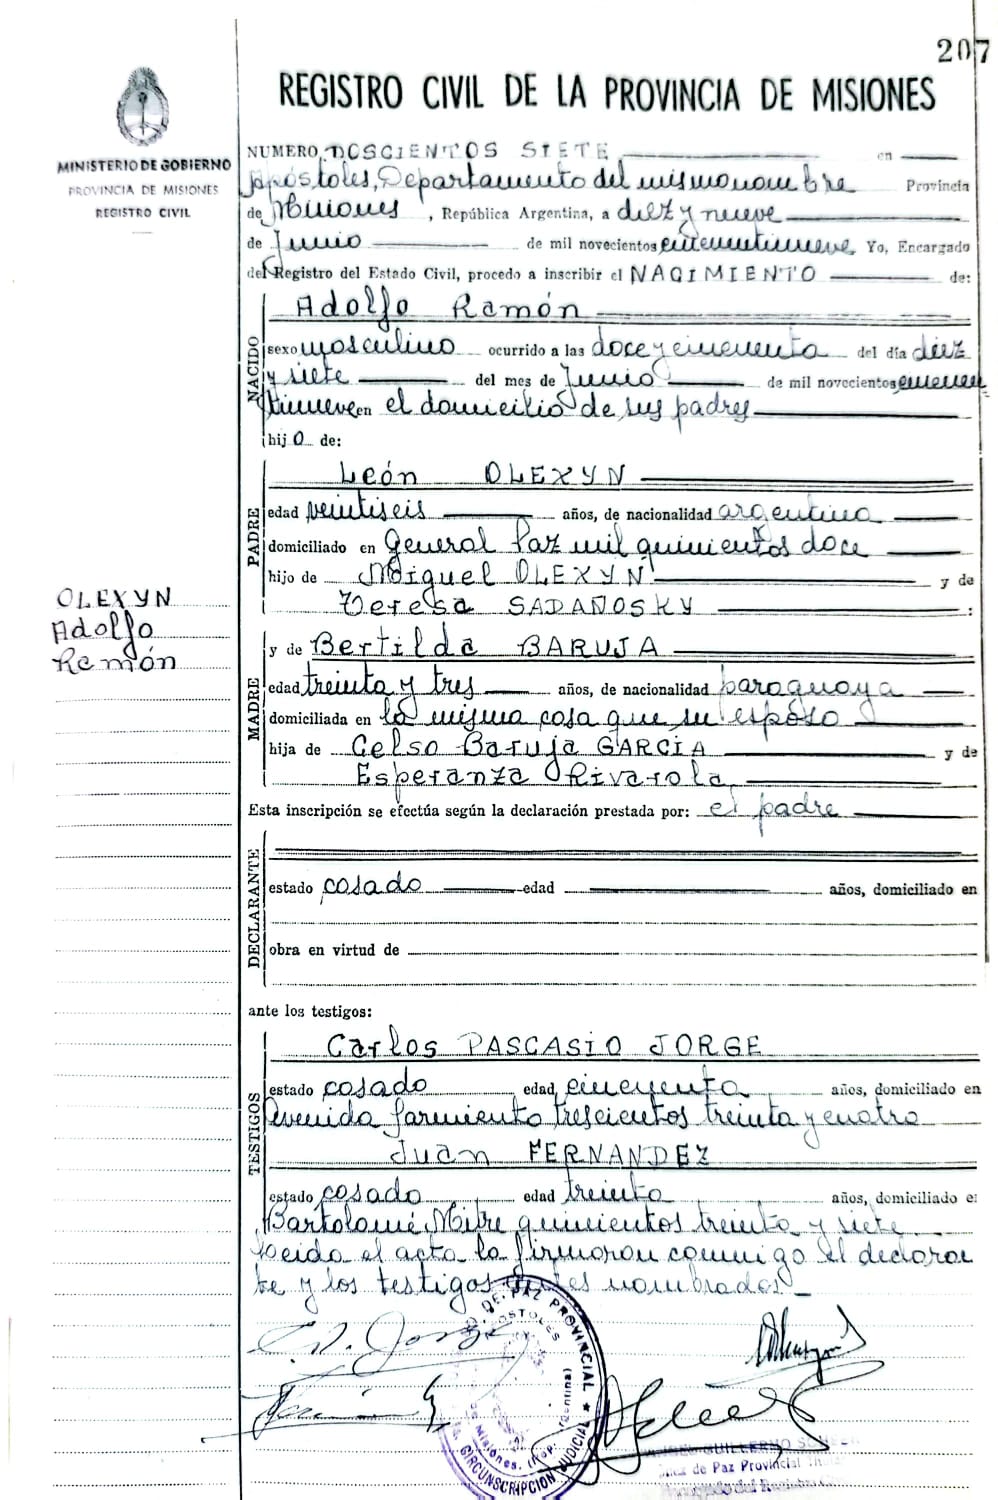 207
REGISTRO CIVIL DE LA PROVINCIA DE MISIONES
MINISTERIO DE GOBIERNO
PROVINCIA DE MISIONES
REGISTRO CIVIL
NUMERO DOSCIENTOS SIETE en
Apóstoles, Departamento del mismo nombre Provincia
de Misiones, República Argentina, a diez y nueve
de Junio de mil novecientos cincuentinueve Yo, Encargado
del Registro del Estado Civil, procedo a inscribir el NACIMIENTO de:
NACIDO
Adolfo Ramón
sexo masculino ocurrido a las doce y cincuenta del día diez
y siete del mes de Junio de mil novecientos cincuen
tinueve en el domicilio de sus padres
hijo de:
PADRE
León OLEXYN
edad veintiseis años, de nacionalidad argentina
domiciliado en General Paz mil quinientos doce
hijo de Miguel OLEXYN y de
Teresa SADAÑOSKY :
OLEXYN
Adolfo
Ramón
MADRE
y de Bertilda BARUJA
edad treinta y tres años, de nacionalidad paraguaya
domiciliada en la misma casa que su esposo
hija de Celso Baruja GARCÍA y de
Esperanza Rivarola
Esta inscripción se efectúa según la declaración prestada por: el padre
DECLARANTE
estado casado edad años, domiciliado en
obra en virtud de
ante los testigos:
TESTIGOS
Carlos PASCASIO JORGE
estado casado edad cincuenta años, domiciliado en
Avenida Sarmiento trescientos treinta y cuatro
Juan FERNANDEZ
estado casado edad treinta años, domiciliado e
Bartolomé Mitre quinientos treinta y siete
Leida el acta la firmaron conmigo el declaran
te y los testigos antes nombrados.
DE PAZ PROVINCIAL
APOSTOLES
CIRCUNSCRIPCION JUDICIAL
de Misiones, (Rep. Argentina)
GUILLERMO
Juez de Paz Provincial Titular
Encargado del Registro